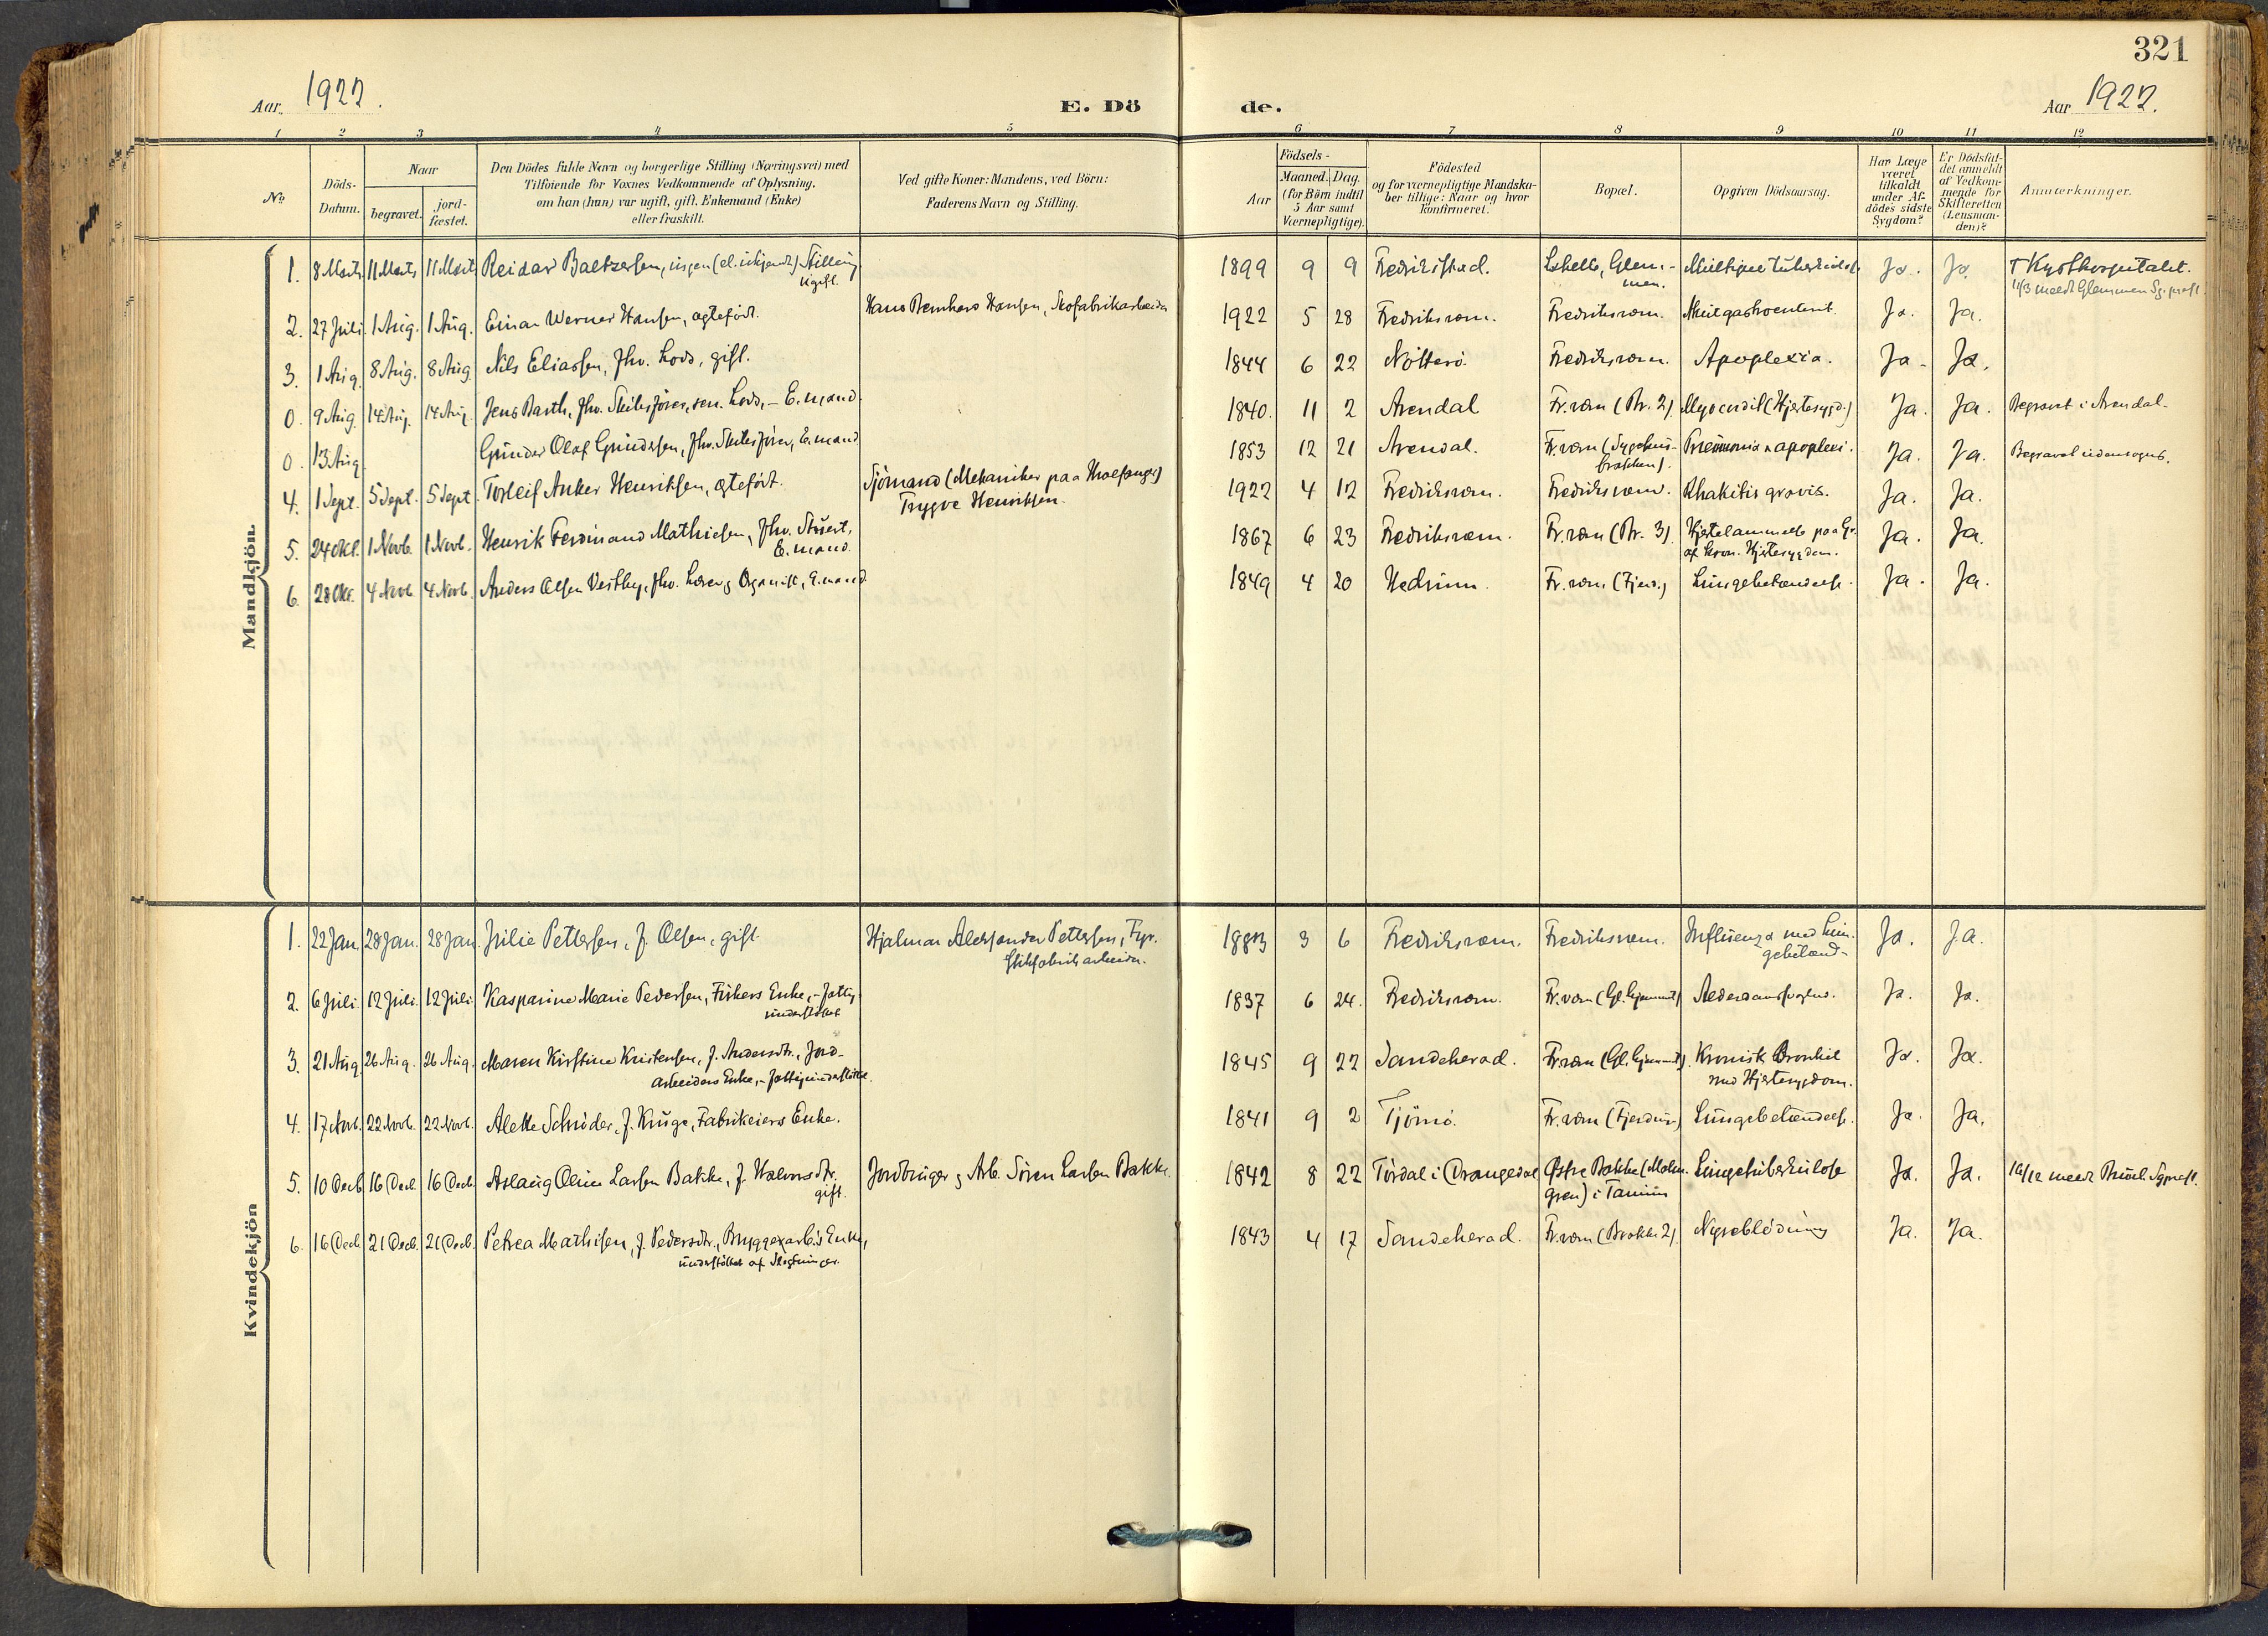 321
Aar 1922.
E. Dö
de.
Aar 1922.
1 2 3 4 5 6 7 8 9 10 11 12
No
Döds-
Datum.
Naar
begravet.
jord-
fæstet.
Den Dödes fulde Navn og borgerlige Stilling (Næringsvei) med
Tilföiende for Voxnes Vedkommende af Oplysning,
om han (hun) var ugift, gift, Enkemand (Enke)
eller fraskilt.
Ved gifte Koner: Mandens, ved Börn:
Faderens Navn og Stilling.
Födsels-
Aar
Maaned. Dag.
(for Börn indtil
5 Aar samt
Værnepligtige).
Födested
og for værnepligtige Mandska-
ber tillige: Naar og hvor
konfirmeret.
Bopæl.
Opgiven Dödsaarsag.
Har Læge
været
tilkaldt
under Af-
dödes sidste
Sygdom?
Er Dödsfal-
det anmeldt
af Vedkom-
mende for
Skifteretten
(Lensman-
den)?
Anmærkninger.
Mandkjön.
1. 8 Marts 11 Marts 11 Marts Reidar Baltzersen, ingen (el. ukjendt) Stilling
ugift.
1899 9 9 Fredrikstad. Lahelle, Glem-
men.
Multipel tuberkulose Ja. Ja. † Kysthospitalet.
11/3 meldt Glemmen Sg.prest.
2. 27 Juli 1 Aug. 1 Aug. Einar Werner Hansen, ægtefödt. Hans Bernhard Hansen, Skofabrikarbeider 1922 5 28 Fredriksværn. Fredriksværn. Ja. Ja.
3. 1 Aug. 8 Aug. 8 Aug. Nils Eliassen, fhv. Lods, gift. 1844 6 22 Nötterö. Fredriksværn. Apoplexia. Ja. Ja.
0. 9 Aug. 14 Aug. 14 Aug. Jens Barth, fhv. Skibsförer, sen. Lods, - E.mand. 1840. 11 2 Arendal Fr.værn (Br. 2) Myocardit (Hjertesygd.) Ja. Ja. Begravet i Arendal.
0. 13 Aug. Gunder Olaf Gundersen, fhv. Skibsförer, E.mand 1853 12 21 Arendal. Fr.værn (Sygehus-
brakken).
Pneumonia & apoplexi. Ja. Ja. Begravet udensogns.
4. 1 Sept. 5 Sept. 5 Sept. Torleif Anker Henriksen, ægtefödt. Sjömand (Mekaniker paa Hvalfanger)
Trygve Henriksen.
1922 4 12 Fredriksværn. Fredriksværn. Rhakitis gravis. Ja. Ja.
5. 24 Okt. 1 Novb. 1 Novb. Henrik Ferdinand Mathiesen, fhv. Stuert,
E.mand.
1867 6 23 Fredriksværn. Fr.værn (Br. 3). Hjertelammelse paa Gr.
af kron. Hjertesygdom.
Ja. Ja.
6. 28 Okt. 4 Novb. 4 Novb. Anders Olsen Vestby, fhv. Lærer og Organist, E.mand. 1849 4 20 Hedrum. Fr.værn (Fjerd.) Lungebetændelse. Ja. Ja.
Kvindekjön
1. 22 Jan. 28 Jan. 28 Jan. Julie Pettersen, f. Olsen, gift. Hjalmar Aleksander Pettersen, Fyr-
stikfabrikarbeider.
3 6 Fredriksværn. Fredriksværn. Influenza med Lun-
gebetænd-
Ja. Ja.
2. 6 Juli. 12 Juli. 12 Juli. Kasparine Marie Pedersen, Fiskers Enke, - fattig-
understöttet
1837 6 24. Fredriksværn. Fr.værn Ja. Ja.
3. 21 Aug. 26 Aug. 26 Aug. Maren Kirstine Kristensen, f. Andersdtr., Jord-
arbeiders Enke, - fattigunderstöttet.
1845 9 22 Sandeherad. Fr.værn Kronisk Bronkit
med Hjertesygdom.
Ja. Ja.
4. 17 Novb. 22 Novb. 22 Novb. Alette Schröder, f. Kruge, Fabrikeiers Enke. 1841 9 2 Tjömö. Fr.værn Lungebetændelse. Ja. Ja.
5. 10 Decb. 16 Decb. 16 Decb. Aslaug Oline Larsen Bakke, f. Halvorsdtr.
gift.
Jordbruger og Arb. Sören Larsen Bakke. 1842 8 22 Tördal i Drangedal Östre Bakke
i Tanum
Lungetuberkulose Ja. Ja. 16/12 meldt Brunl. Sgprest.
6. 16 Decb. 21 Decb. 21 Decb. Petrea Mathisen, f. Pedersdtr., Bryggearb.s Enke,
understöttet af Slægtninger.
1843 4 17 Sandeherad. Fr.værn (Brakke 2). Nyreblödning Ja. Ja.